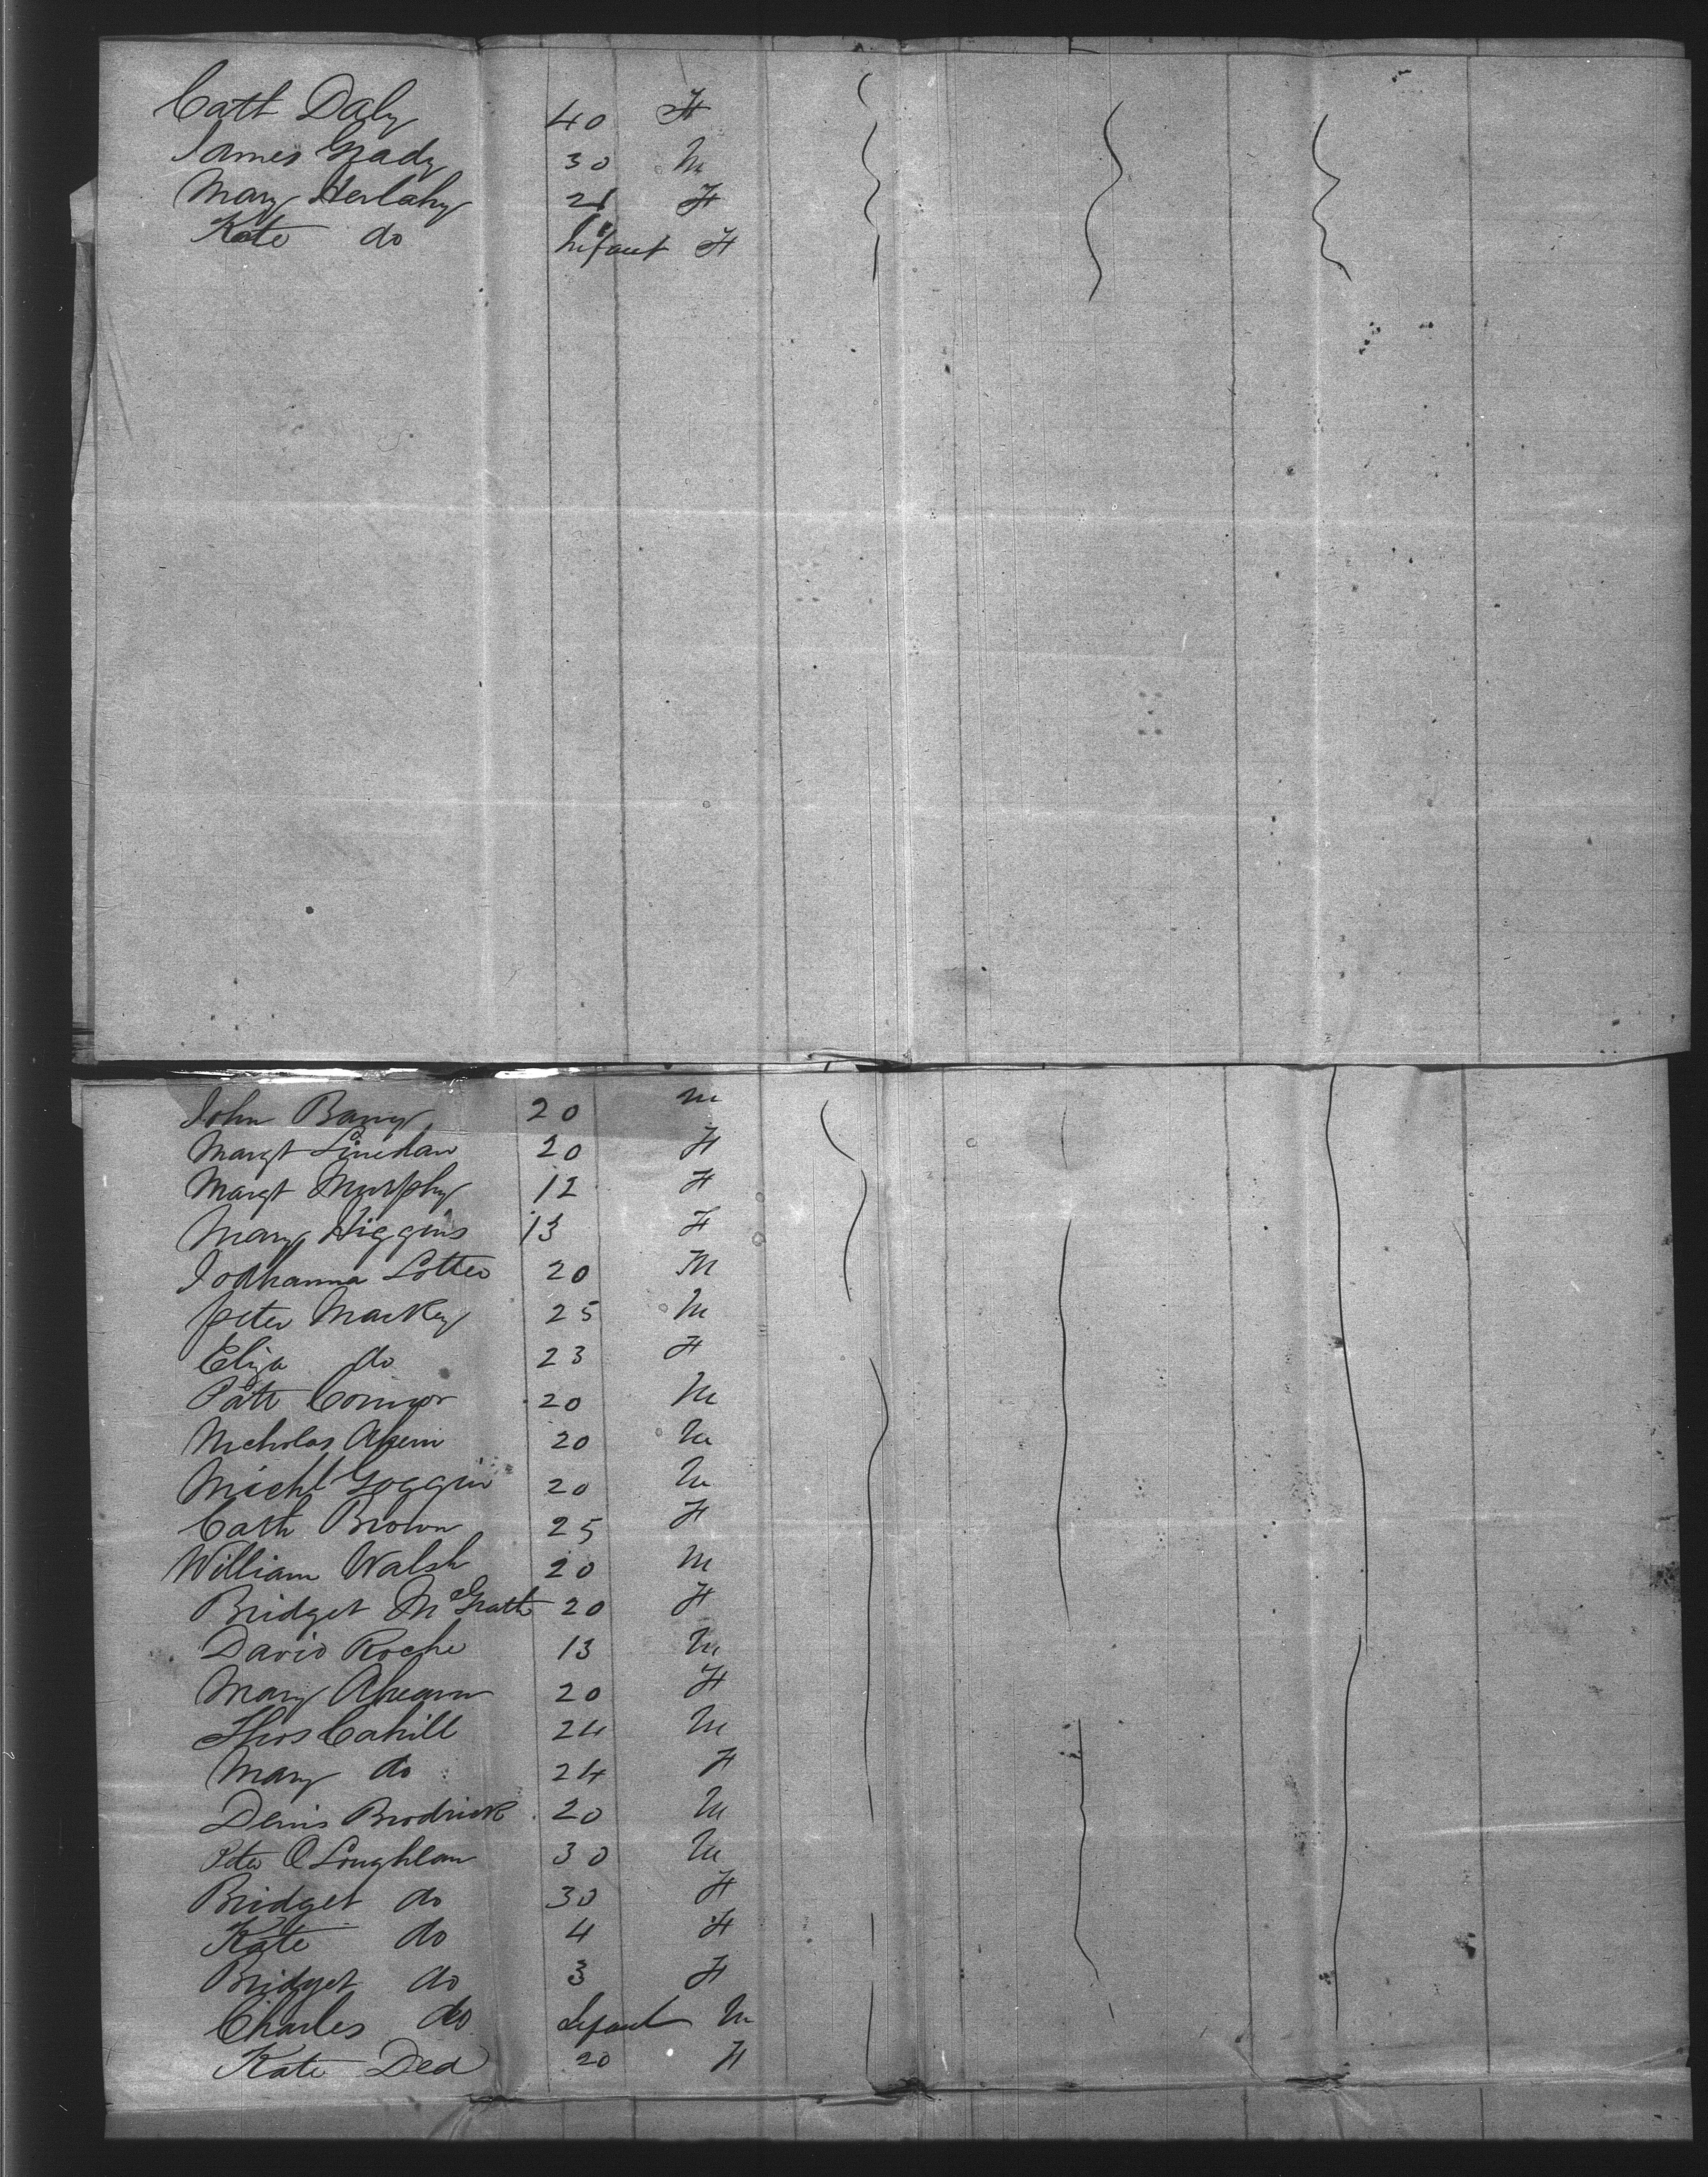 Cath Daly 40 F
James Grady 30 M
Mary Herlahy 21 F
Kate do Infant F
John Barry 20 M
Margt Linehan 20 F
Margt Murphy 12 F
Mary Higgins 13 F
Johhanna 20 M
Peter Markey 25 M
Eliza do 23 F
Patk Connor 20 M
Nicholas Ahern 20 M
Michl Goggin 20 M
Cath Brown 25 F
William Walsh 20 M
Bridget McGrath 20 F
David Roche 13 M
Mary Ahearn 20 F
Thos Cahill 24 M
Mary do 24 F
Denis Brodrick 20 M
Peter O Loughlan 30 M
Bridget do 30 F
Kate do 4 F
Bridget do 3 F
Charles do Infant M
Kate Dea 20 F